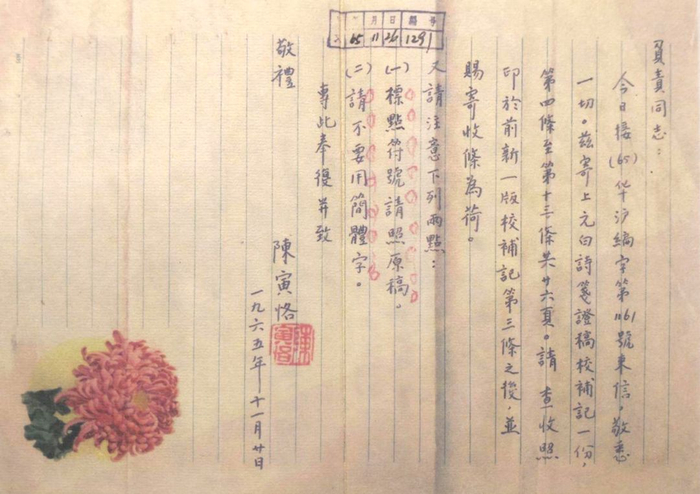 負責同志：
今日接(65)华沪编字第1161號來信，敬悉
一切。茲寄上元白詩箋證稿校補記一份，
第四條至第十三條共廿六頁。請 查收照
印於前新一版校補記第三條之後，並
賜寄收條為荷。
又請注意下列兩點：
(一)標點符號請照原稿。
(二)請不要用簡體字。
專此奉復並致
敬禮
陳寅恪
一九六五年十一月廿日
月 日 編 号
65 11 26 1291